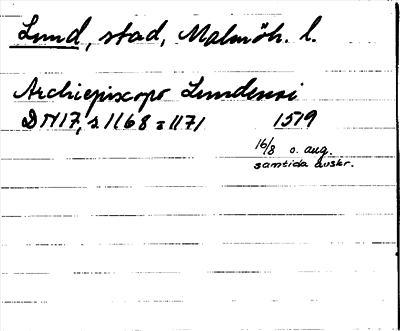 Lund, stad, Malmöh. l.
Archiepiscopo Lundensi
DN17, s. 1168 = 1171 1519
16/8 o. aug.
samtida avskr.